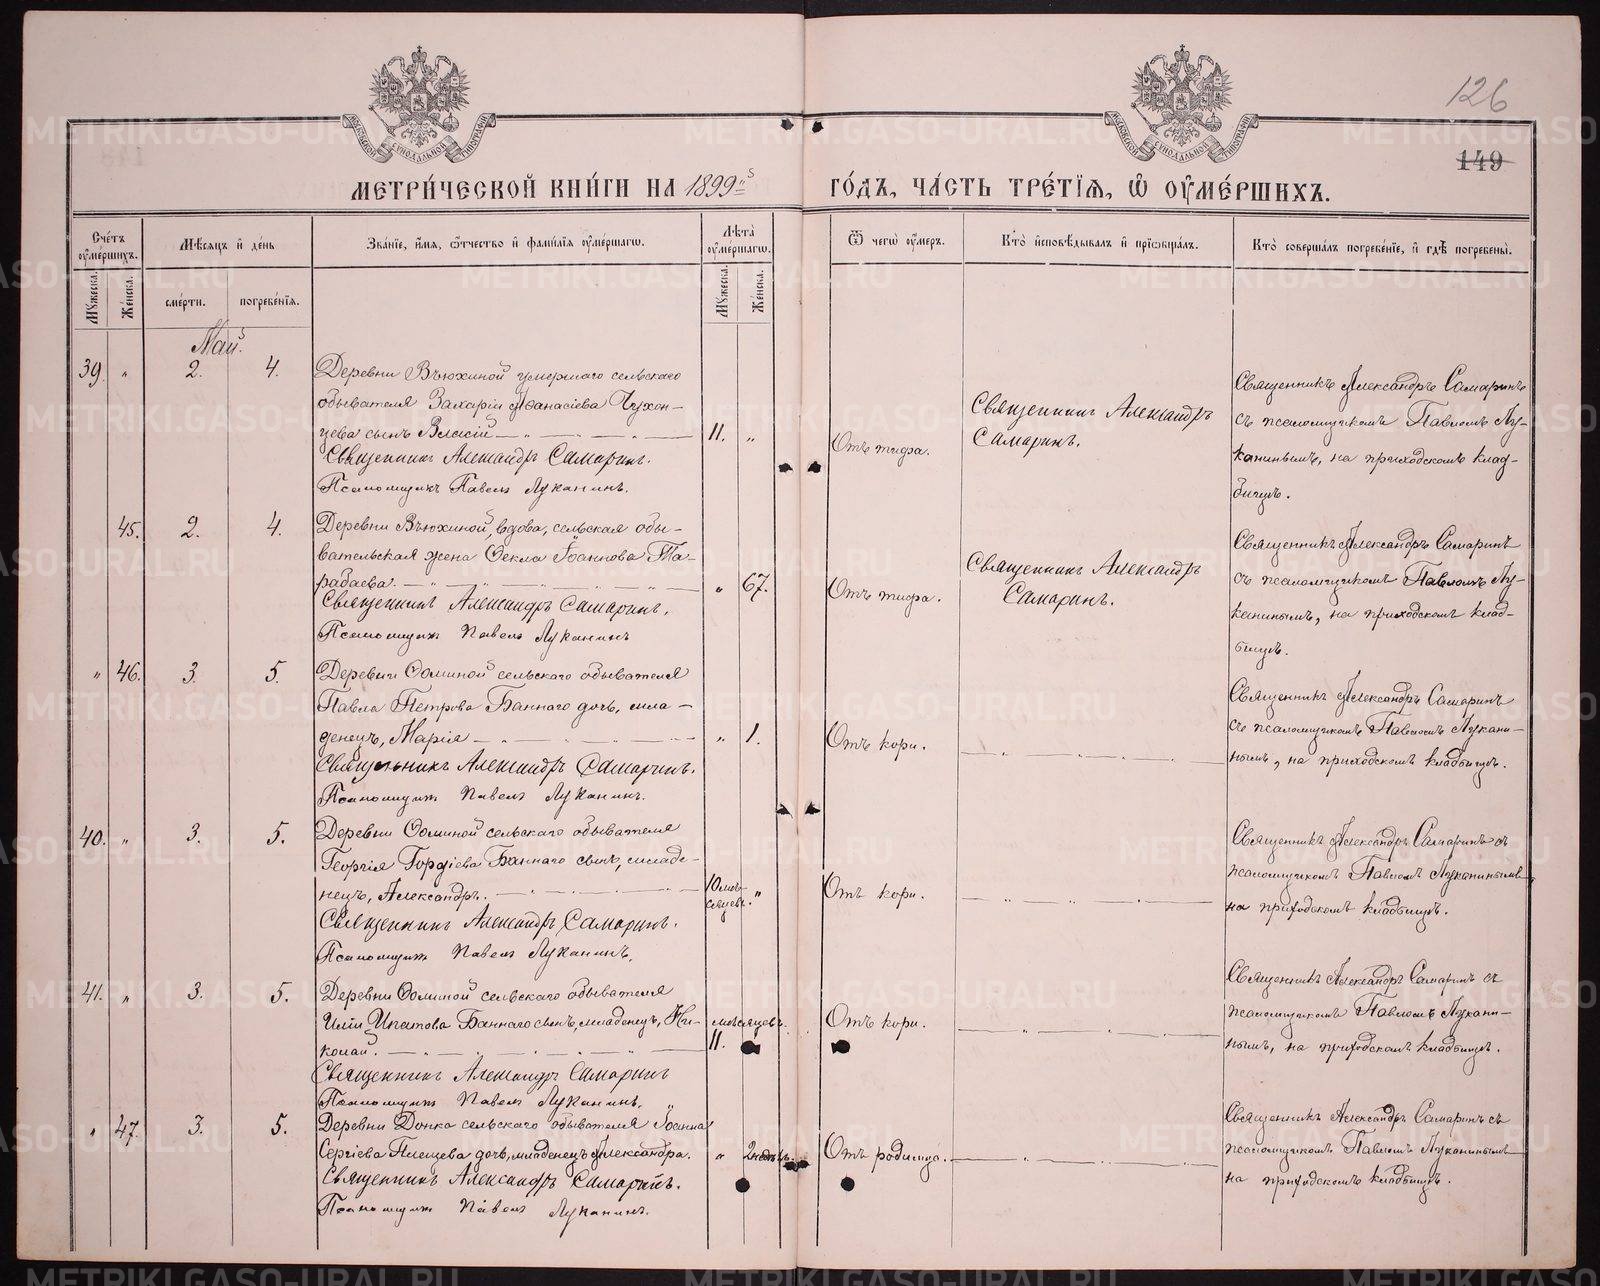 126
149
МОСКОВСКОЙ СѴНОДАЛЬНОЙ ТИПОГРАФІИ
МОСКОВСКОЙ СѴНОДАЛЬНОЙ ТИПОГРАФІИ
МЕТРИ́ЧЕСКОЙ КНИ́ГИ НА 1899й ГО́ДЪ, ЧА́СТЬ ТРЕ́ТІѦ, Ѡ҆ ОУ҆МЕ́РШИХЪ.
Сче́тъ оу҆ме́ршихъ.
Мꙋ́жеска.
Же́нска.
Мѣ́сѧцъ и҆ де́нь
сме́рти.
погребе́нїѧ.
Зва́нїе, и҆́мѧ, ѻ҆́тчество и҆ фами́лїѧ оу҆ме́ршагѡ.
Лѣ́та оу҆ме́ршагѡ.
Мꙋ́жеска.
Же́нска.
Ѿ чегѡ̀ оу҆́меръ.
Кто̀ и҆сповѣ́дывалъ и҆ прїѡбща́лъ.
Кто̀ соверша́лъ погребе́нїе, и҆ гдѣ̀ погребены̀.
Май.
39. „ 2. 4. Деревни Вьюхиной умершаго сельскаго
обывателя Захаріи Аѳанасіева Чухон-
цева сынъ Власій 11. „ Отъ тифа.
Священникъ Александръ Самаринъ.
Псаломщикъ Павелъ Луканинъ.
Священникъ Александръ
Самаринъ.
Священникъ Александръ Самаринъ
съ псаломщикомъ Павломъ Лу-
канинымъ, на приходскомъ клад-
бищѣ.
45. 2. 4. Деревни Вьюхиной, вдова, сельская обы-
вательская жена Ѳекла Іоаннова Та-
рабаева. „ 67. Отъ тифа.
Священникъ Александръ Самаринъ.
Псаломщикъ Павелъ Луканинъ
Священникъ Александръ
Самаринъ.
Священникъ Александръ Самаринъ
съ псаломщикомъ Павломъ Лу-
канинымъ, на приходскомъ клад-
бищѣ.
„ 46. 3. 5. Деревни Ѳоминой сельскаго обывателя
Павла Петрова Баннаго дочь, мла-
денецъ, Марія „ 1. Отъ кори.
Священникъ Александръ Самаринъ.
Псаломщикъ Павелъ Луканинъ.
Священникъ Александръ Самаринъ
съ псаломщикомъ Павломъ Лукани-
нымъ, на приходскомъ кладбищѣ.
40. „ 3. 5. Деревни Ѳоминой сельскаго обывателя
Георгія Гордіева Баннаго сынъ, младе-
нецъ, Александръ. 10 мѣ-
сяцевъ. „ Отъ кори.
Священникъ Александръ Самаринъ.
Псаломщикъ Павелъ Луканинъ.
Священникъ Александръ Самаринъ съ
псаломщикомъ Павломъ Луканинымъ,
на приходскомъ кладбищѣ.
41. „ 3. 5. Деревни Ѳоминой сельскаго обывателя
Иліи Ипатова Баннаго сынъ, младенецъ, Ни-
колай. мѣсяцевъ.
11. Отъ кори.
Священникъ Александръ Самаринъ
Псаломщикъ Павелъ Луканинъ.
Священникъ Александръ Самаринъ съ
псаломщикомъ Павломъ Лукани-
нымъ, на приходскомъ кладбищѣ.
„ 47. 3. 5. Деревни Донка сельскаго обывателя Іоанна
Сергіева Плещева дочь, младенецъ Александра. „ Отъ родимца.
Священникъ Александръ Самаринъ.
Псаломщикъ Павелъ Луканинъ.
Священникъ Александръ Самаринъ съ
псаломщикомъ Павломъ Луканинымъ
на приходскомъ кладбищѣ.
METRIKI.GASO-URAL.RU